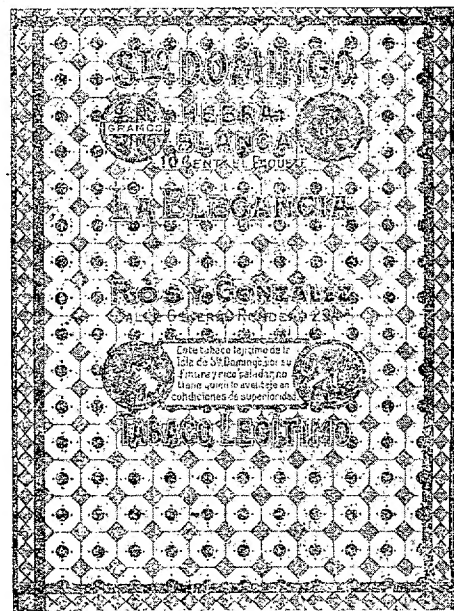 STO. DOMINGO
HEBRA
GRAMOS
BLANCA
10 CENT. EL PAQUETE
LA ELEGANCIA
ROS Y GONZALEZ
CALLE GENERAL RONDEAU
Este tabaco legitimo de la
Isla de Sto. Domingo, por su
finura y rico paladar, no
tiene quien le aventaje en
condiciones de superioridad.
TABACO LEGITIMO